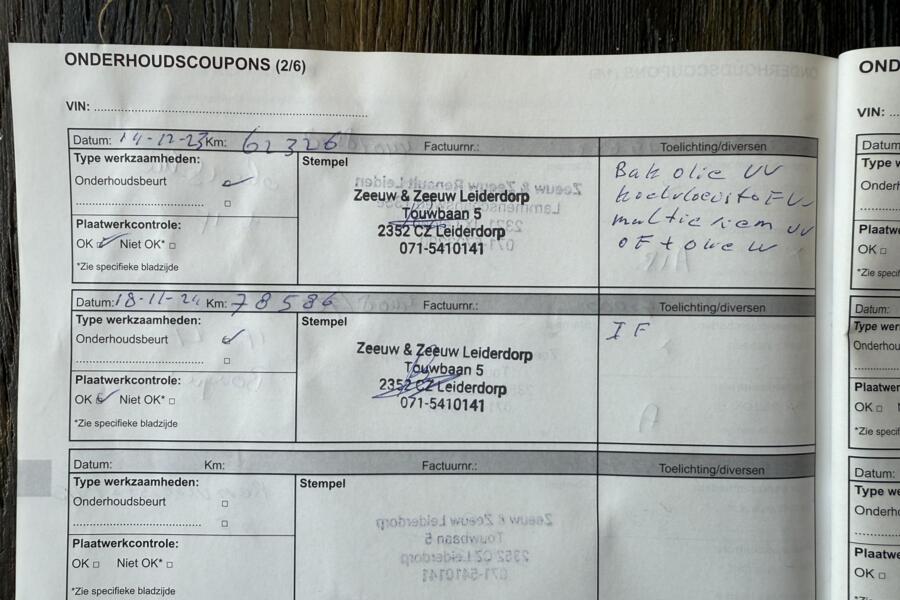 ONDERHOUDSCOUPONS (2/6)
VIN:
Datum: 14-12-23 Km: 62326 Factuurnr.: Toelichting/diversen
Type werkzaamheden:
Onderhoudsbeurt
Plaatwerkcontrole:
OK Niet OK*
*Zie specifieke bladzijde
Stempel
Zeeuw & Zeeuw Leiderdorp
Touwbaan 5
2352 CZ Leiderdorp
071-5410141
Bak olie VV
koelvloeistof VV
multie riem VV
OF + owe
Datum: 18-11-24 Km: 78586 Factuurnr.: Toelichting/diversen
Type werkzaamheden:
Onderhoudsbeurt
Plaatwerkcontrole:
OK Niet OK*
*Zie specifieke bladzijde
Stempel
Zeeuw & Zeeuw Leiderdorp
Touwbaan 5
2352 CZ Leiderdorp
071-5410141
IF
Datum: Km: Factuurnr.: Toelichting/diversen
Type werkzaamheden:
Onderhoudsbeurt
Plaatwerkcontrole:
OK Niet OK*
*Zie specifieke bladzijde
Stempel
OND
VIN:
Datum
Type w
Onderh
Plaatwe
OK
*Zie spec
Datum:
Type wer
Onderhou
Plaatwer
OK
*Zie specif
Datum:
Type we
Onderho
Plaatwe
OK